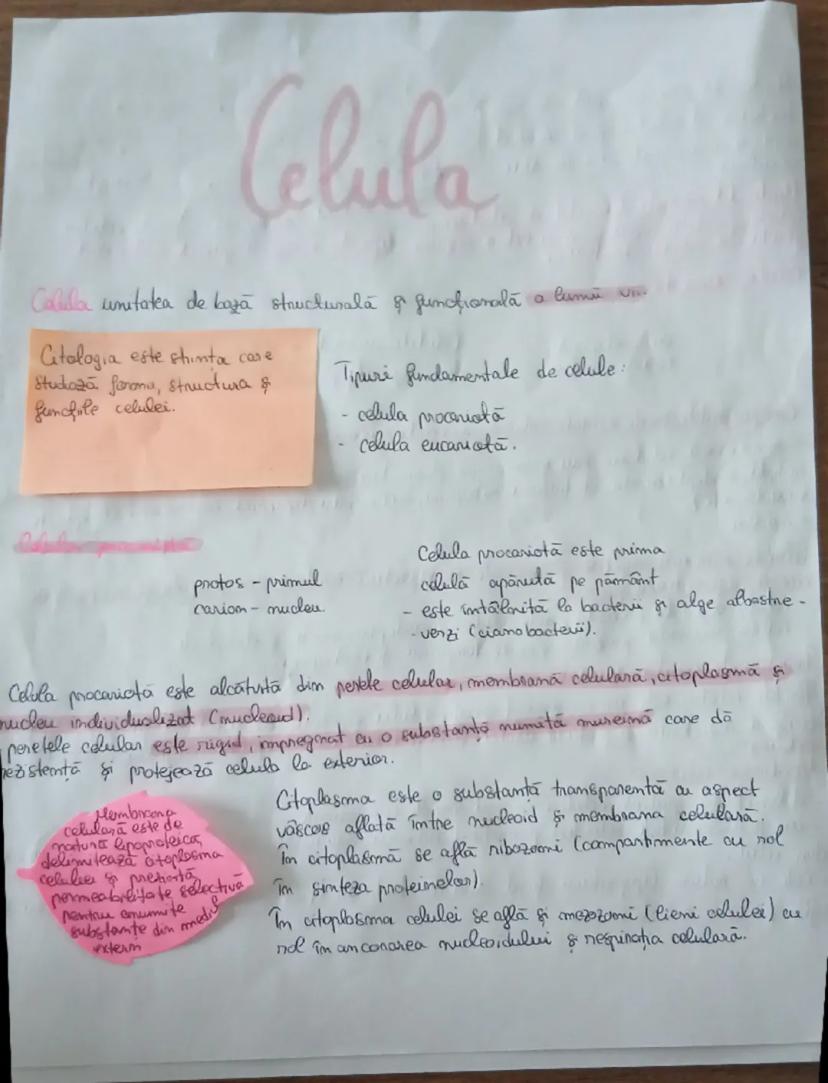 Celula
Celula unitatea de bază structurală și funcțională a lumii
Citologia este știința care
studiază forma, structura și
funcțiile celulei.
Tipuri fundamentale de celule:
- celula procariotă
- celula eucariotă.
Celula procariotă
protos - primul
carion - nucleu
Celula procariotă este prima
celulă apărută pe pământ
- este întâlnită la bacterii și alge albastre-
- verzi (cianobacterii).
Celula procariotă este alcătuită din perete celular, membrană celulară, citoplasmă și
nucleu individualizat (nucleoid).
peretele celular este rigid, impregnat cu o substanță numită mureină care dă
rezistență și protejează celula la exterior.
Membrana
celulară este de
natură lipoproteică,
delimitează citoplasma
celulei și prezintă
permeabilitate selectivă
pentru anumite
substanțe din mediul
extern
Citoplasma este o substanță transparentă cu aspect
vâscos aflată între nucleoid și membrana celulară.
În citoplasmă se află ribozomi (compartimente cu rol
în sinteza proteinelor).
În citoplasma celulei se află și mezozomi (lieni celulei) cu
rol în ancorarea nucleoidului și respirația celulară.